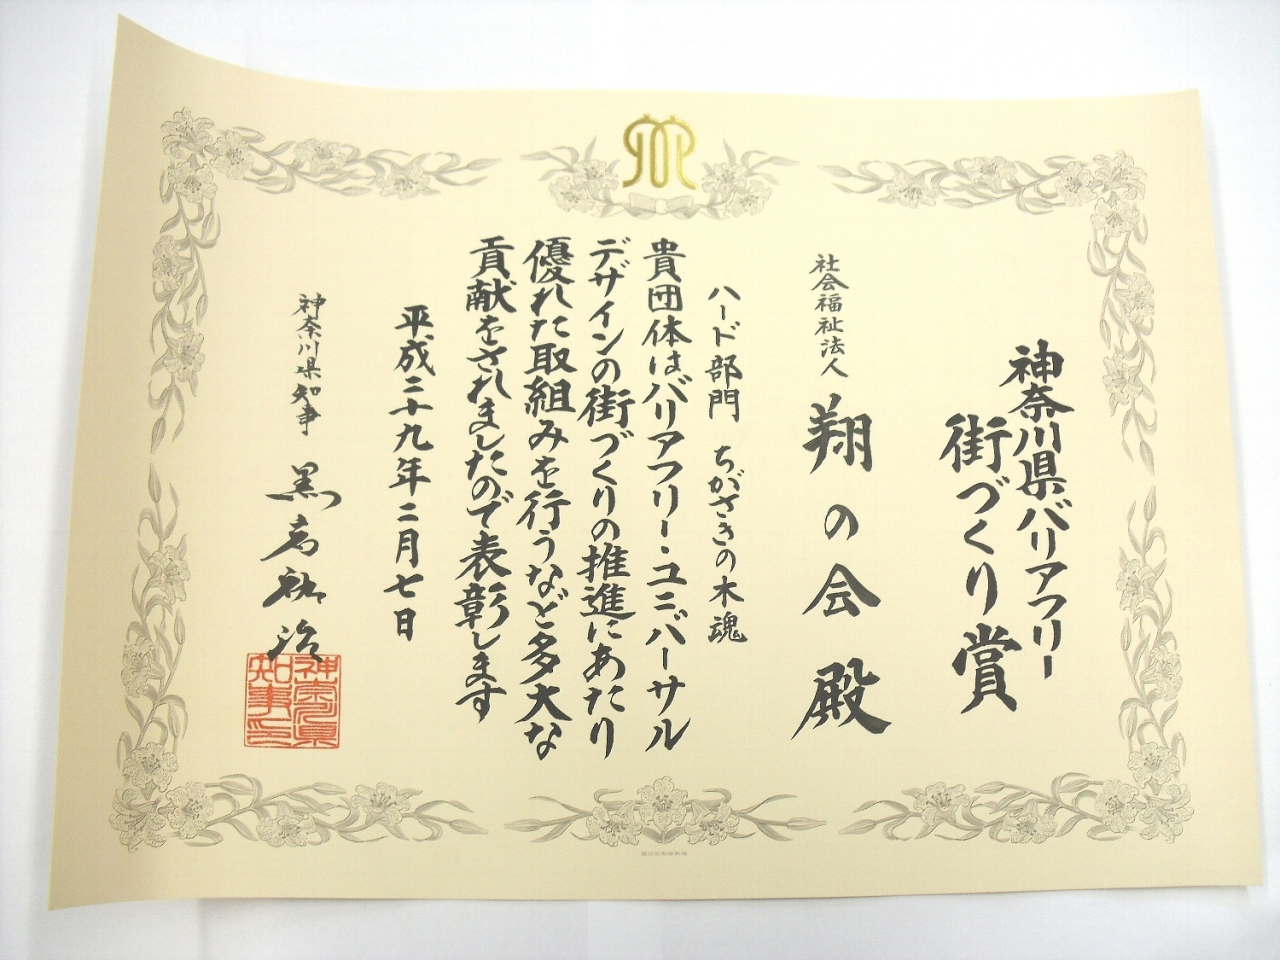 神奈川県バリアフリー
街づくり賞
社会福祉法人 翔の会 殿
ハード部門 ちがさきの木魂
貴団体はバリアフリー・ユニバーサル
デザインの街づくりの推進にあたり
優れた取組みを行うなど多大な
貢献をされましたので表彰します
平成二十九年二月七日
神奈川県知事 黒岩祐治
神奈川県
知事之印